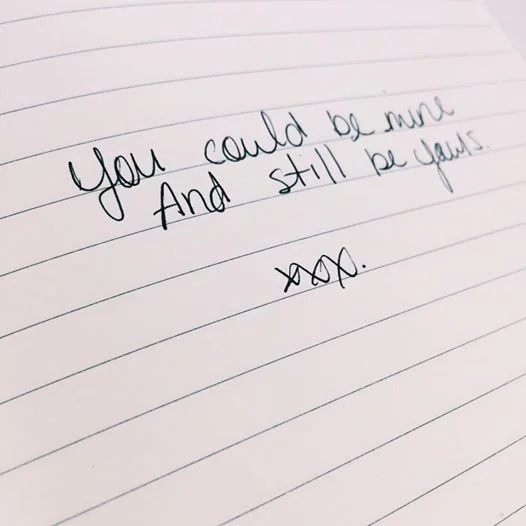 You could be mine
And still be yours.
xxx.